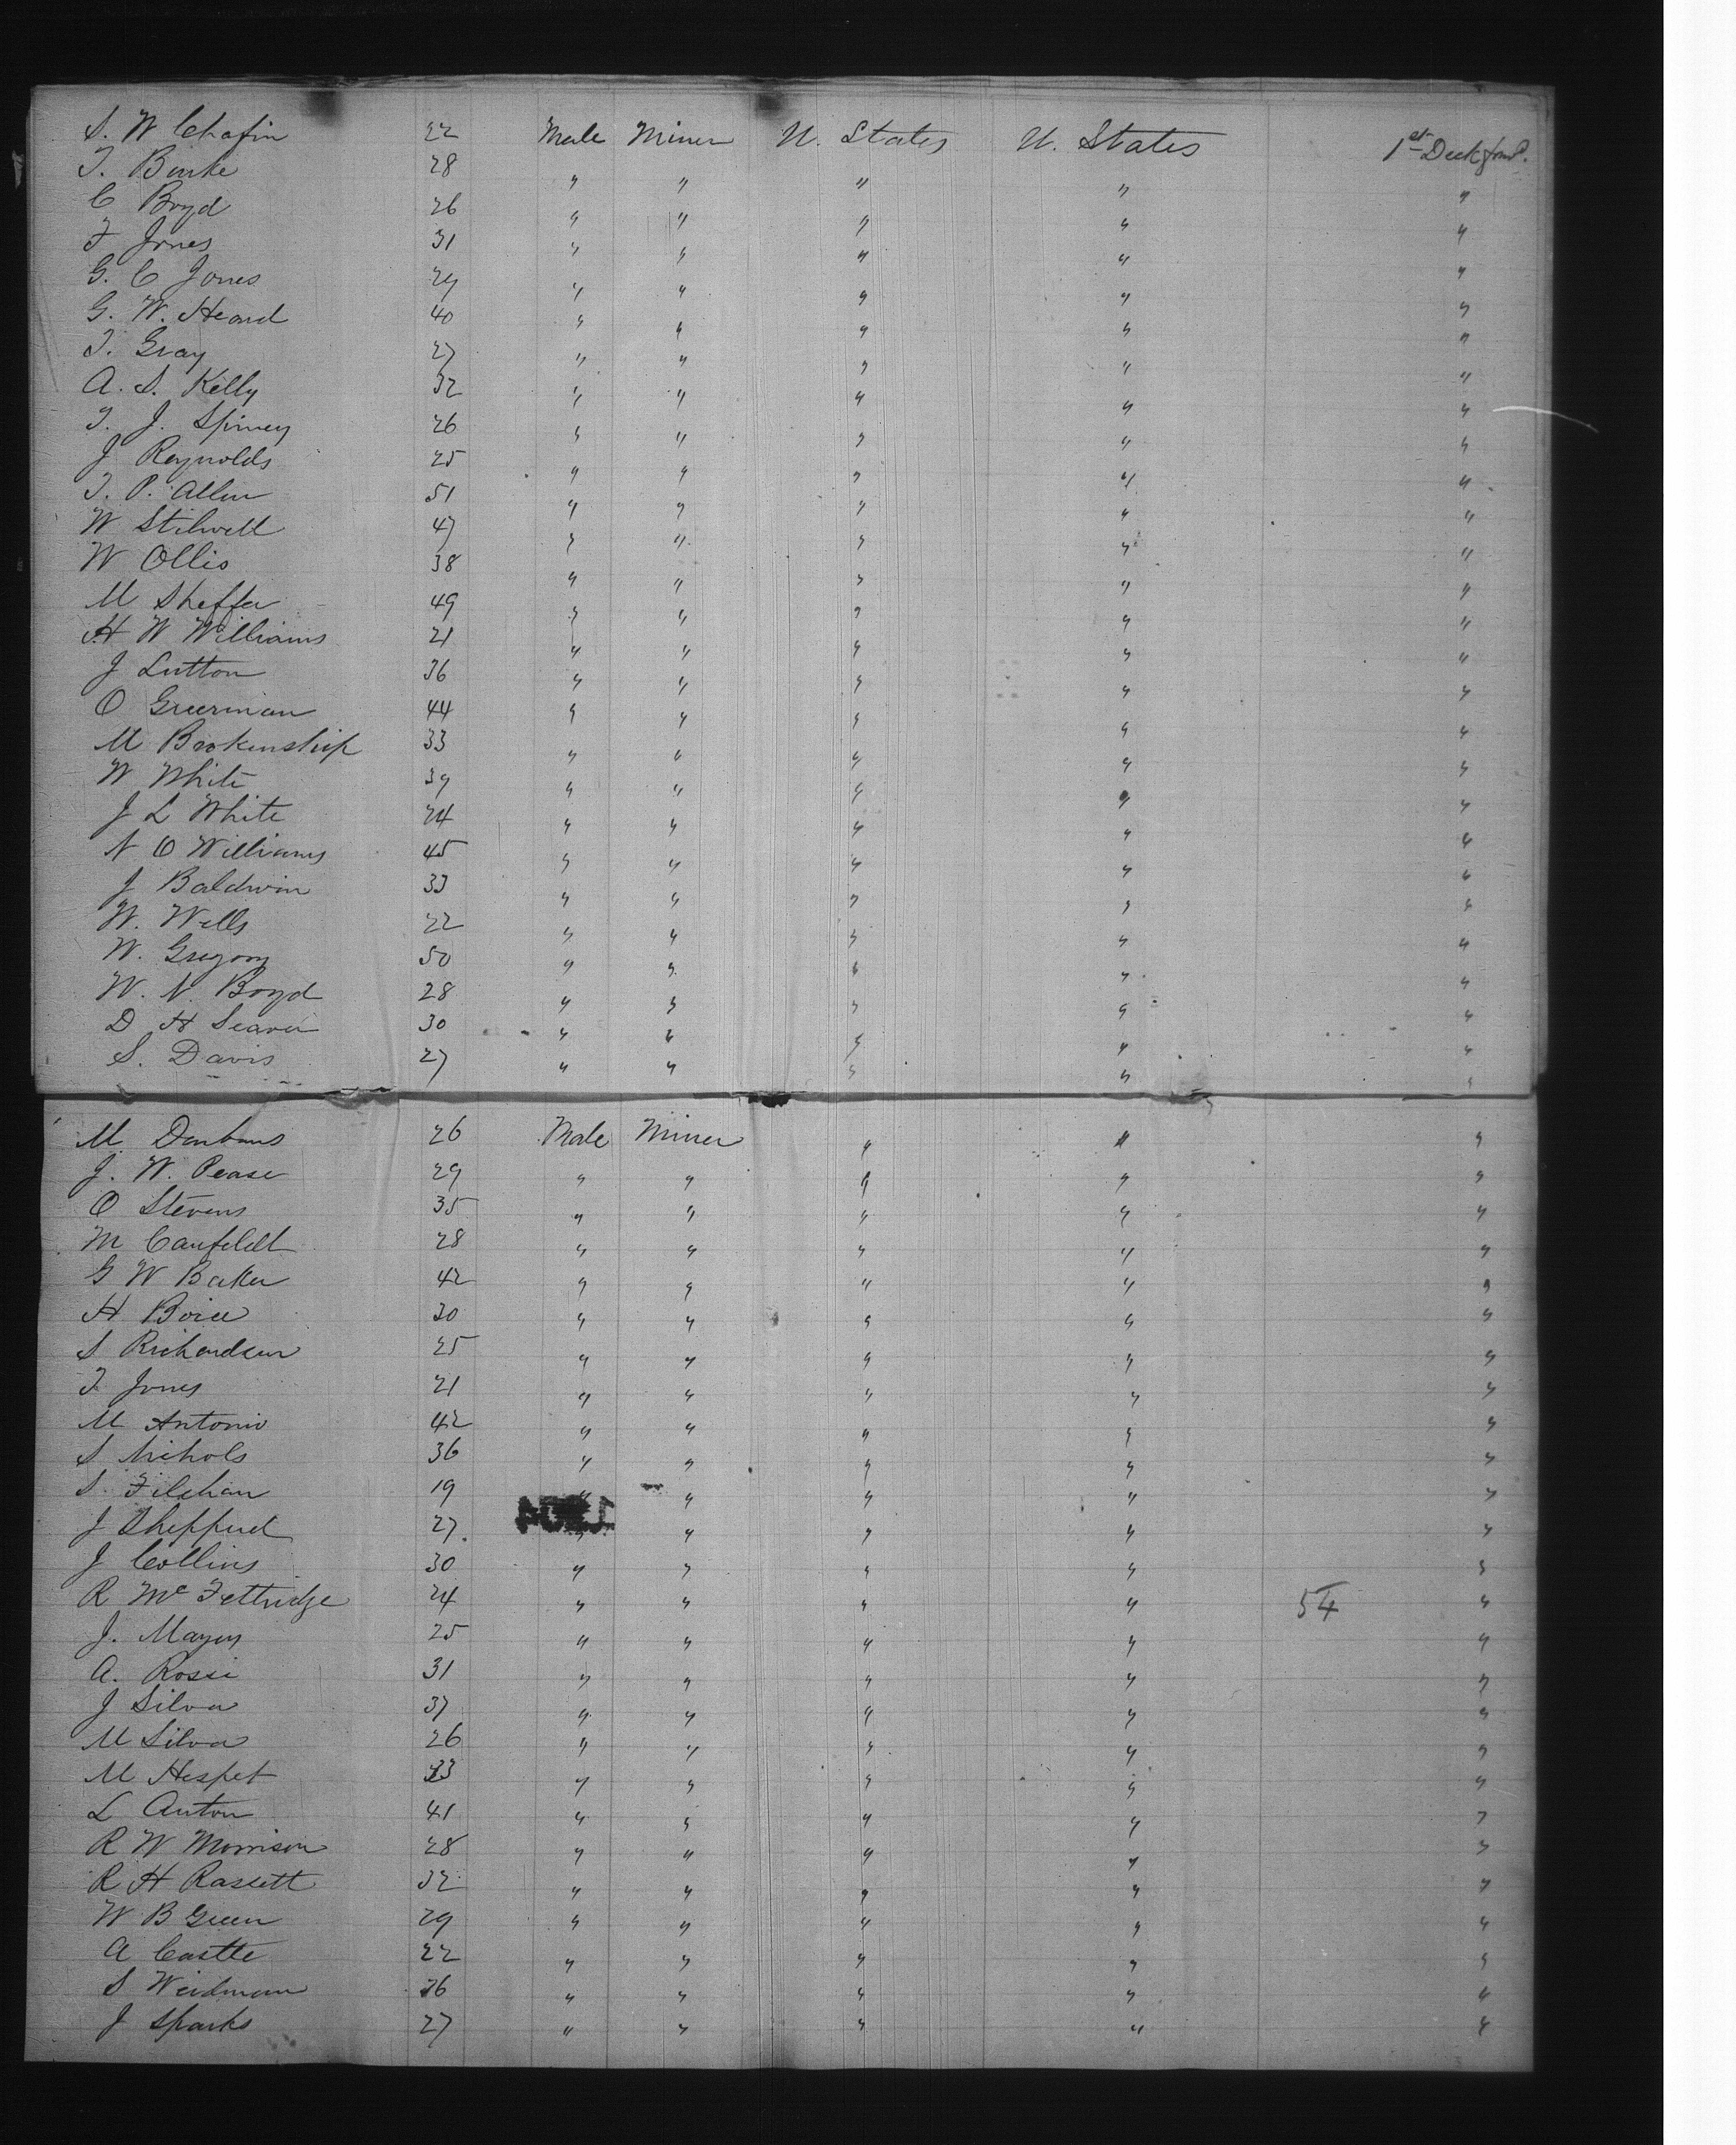 S. W Chafin 22 Male Miner U. States U. States 1st Deck forwd.
T. Burke 28 " " " " "
C Boyd 26 " " " " "
F Jones 31 " " " " "
G. C Jones 29 " " " " "
G. W. Heard 40 " " " " "
T. Gray 27 " " " " "
A. S. Kelly 32 " " " " "
T. J. Spinney 26 " " " " "
J Reynolds 25 " " " " "
T. P. Allen 51 " " " " "
W Stilwell 47 " " " " "
W Ollis 38 " " " " "
M Sheffer 49 " " " " "
H W Williams 21 " " " " "
J Lutton 36 " " " " "
O Greenman 44 " " " " "
M Brokenship 33 " " " " "
W White 39 " " " " "
J L White 24 " " " " "
N O Williams 45 " " " " "
J Baldwin 33 " " " " "
W. Wells 22 " " " " "
W. Gregory 50 " " " " "
W. N. Boyd 28 " " " " "
D H Seaver 30 " " " " "
S. Davis 27 " " " " "
M. 26 Male Miner " " "
J. W. Pease 29 " " " " "
O Stevens 35 " " " " "
M Canfeldt 28 " " " " "
G W Baker 42 " " " " "
H Boice 30 " " " " "
S Richardson 25 " " " " "
T Jones 21 " " " " "
M Antonio 42 " " " " "
S Nichols 36 " " " " "
S. Filchan 19 " " " " "
J Shepperd 27. " " " " "
J Collins 30 " " " " "
R McFettridge 24 " " " " 54 "
J. Mayers 25 " " " " "
A. Rossi 31 " " " " "
J Silva 37 " " " " "
M Silva 26 " " " " "
M Hespet 33 " " " " "
L Anton 41 " " " " "
R W Morrison 28 " " " " "
R H Rassett 32 " " " " "
W B Green 29 " " " " "
A Castle 22 " " " " "
S Weidman 36 " " " " "
J Sparks 27 " " " " "